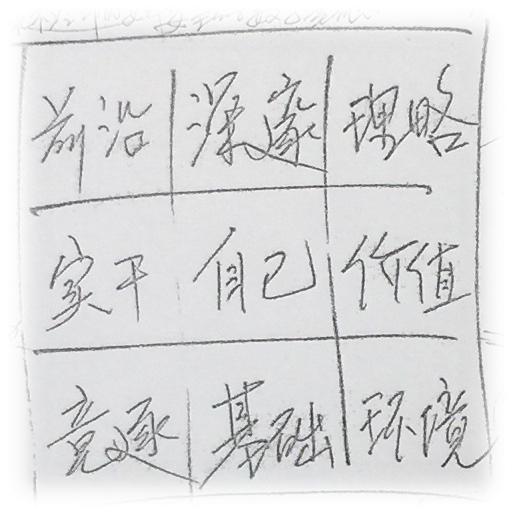 前沿 深邃 理略
实干 自己 价值
竞逐 基础 环境